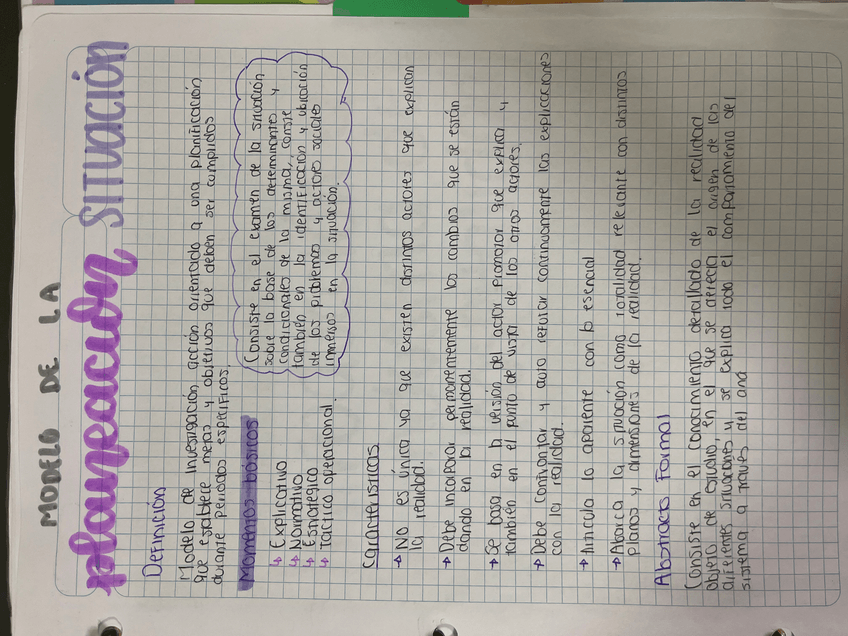 MODELO DE LA
planeación SITUACIÓN
Definición
Modelo de investigación acción orientado a una planificación
que establece metas y objetivos que deben ser cumplidos
durante periodos específicos.
Momentos básicos
↳ Explicativo
↳ Normativo
↳ Estratégico
↳ Táctico operacional.
Consiste en el examen de la situación
sobre la base de los determinantes y
condicionales de la misma, consiste
también en la identificación y ubicación
de los problemas y actores sociales
inmersos en la situación.
Características
→ No es única ya que existen distintos actores que explican
la realidad.
→ Debe incorporar permanentemente los cambios que se están
dando en la realidad.
→ Se basa en la versión del actor promotor que explica y
también en el punto de vista de los otros actores.
→ Debe confrontar y auto refutar continuamente las explicaciones
con la realidad.
→ Articula lo aparente con lo esencial
→ Abarca la situación como totalidad relevante con distintos
planos y dimensiones de la realidad.
Abstracto Formal
Consiste en el conocimiento detallado de la realidad
objeto de estudio, en el que se aprecia el origen de las
diferentes situaciones y se explica todo el comportamiento del
sistema a través del aná